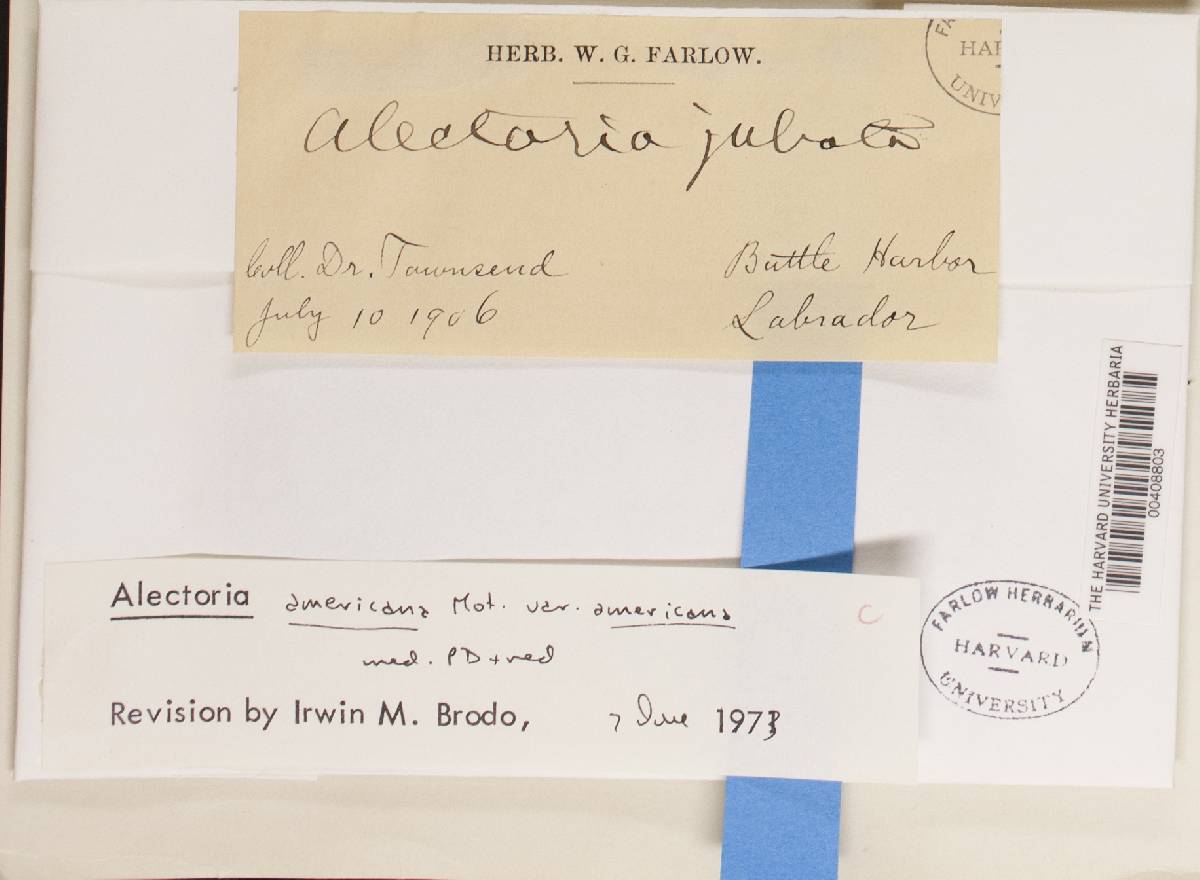 HERB. W. G. FARLOW.
FA
HAR
UNIV
Alectoria jubata
Coll. Dr. Townsend
July 10 1906
Battle Harbor
Labrador
THE HARVARD UNIVERSITY HERBARIA
00408803
Alectoria americana Mot. var. americana
C
med. PD+red
Revision by Irwin M. Brodo, 7 June 1973
FARLOW HERBARIUM
HARVARD
UNIVERSITY